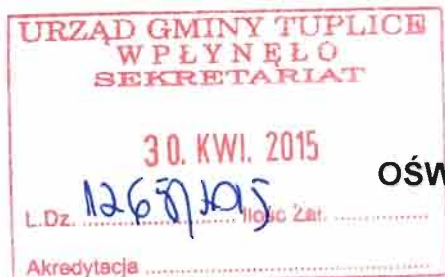 URZĄD GMINY TUPLICE
WPŁYNĘŁO
SEKRETARIAT
30. KWI. 2015
OŚW
L.Dz. Ilość Zał.
Akredytacja